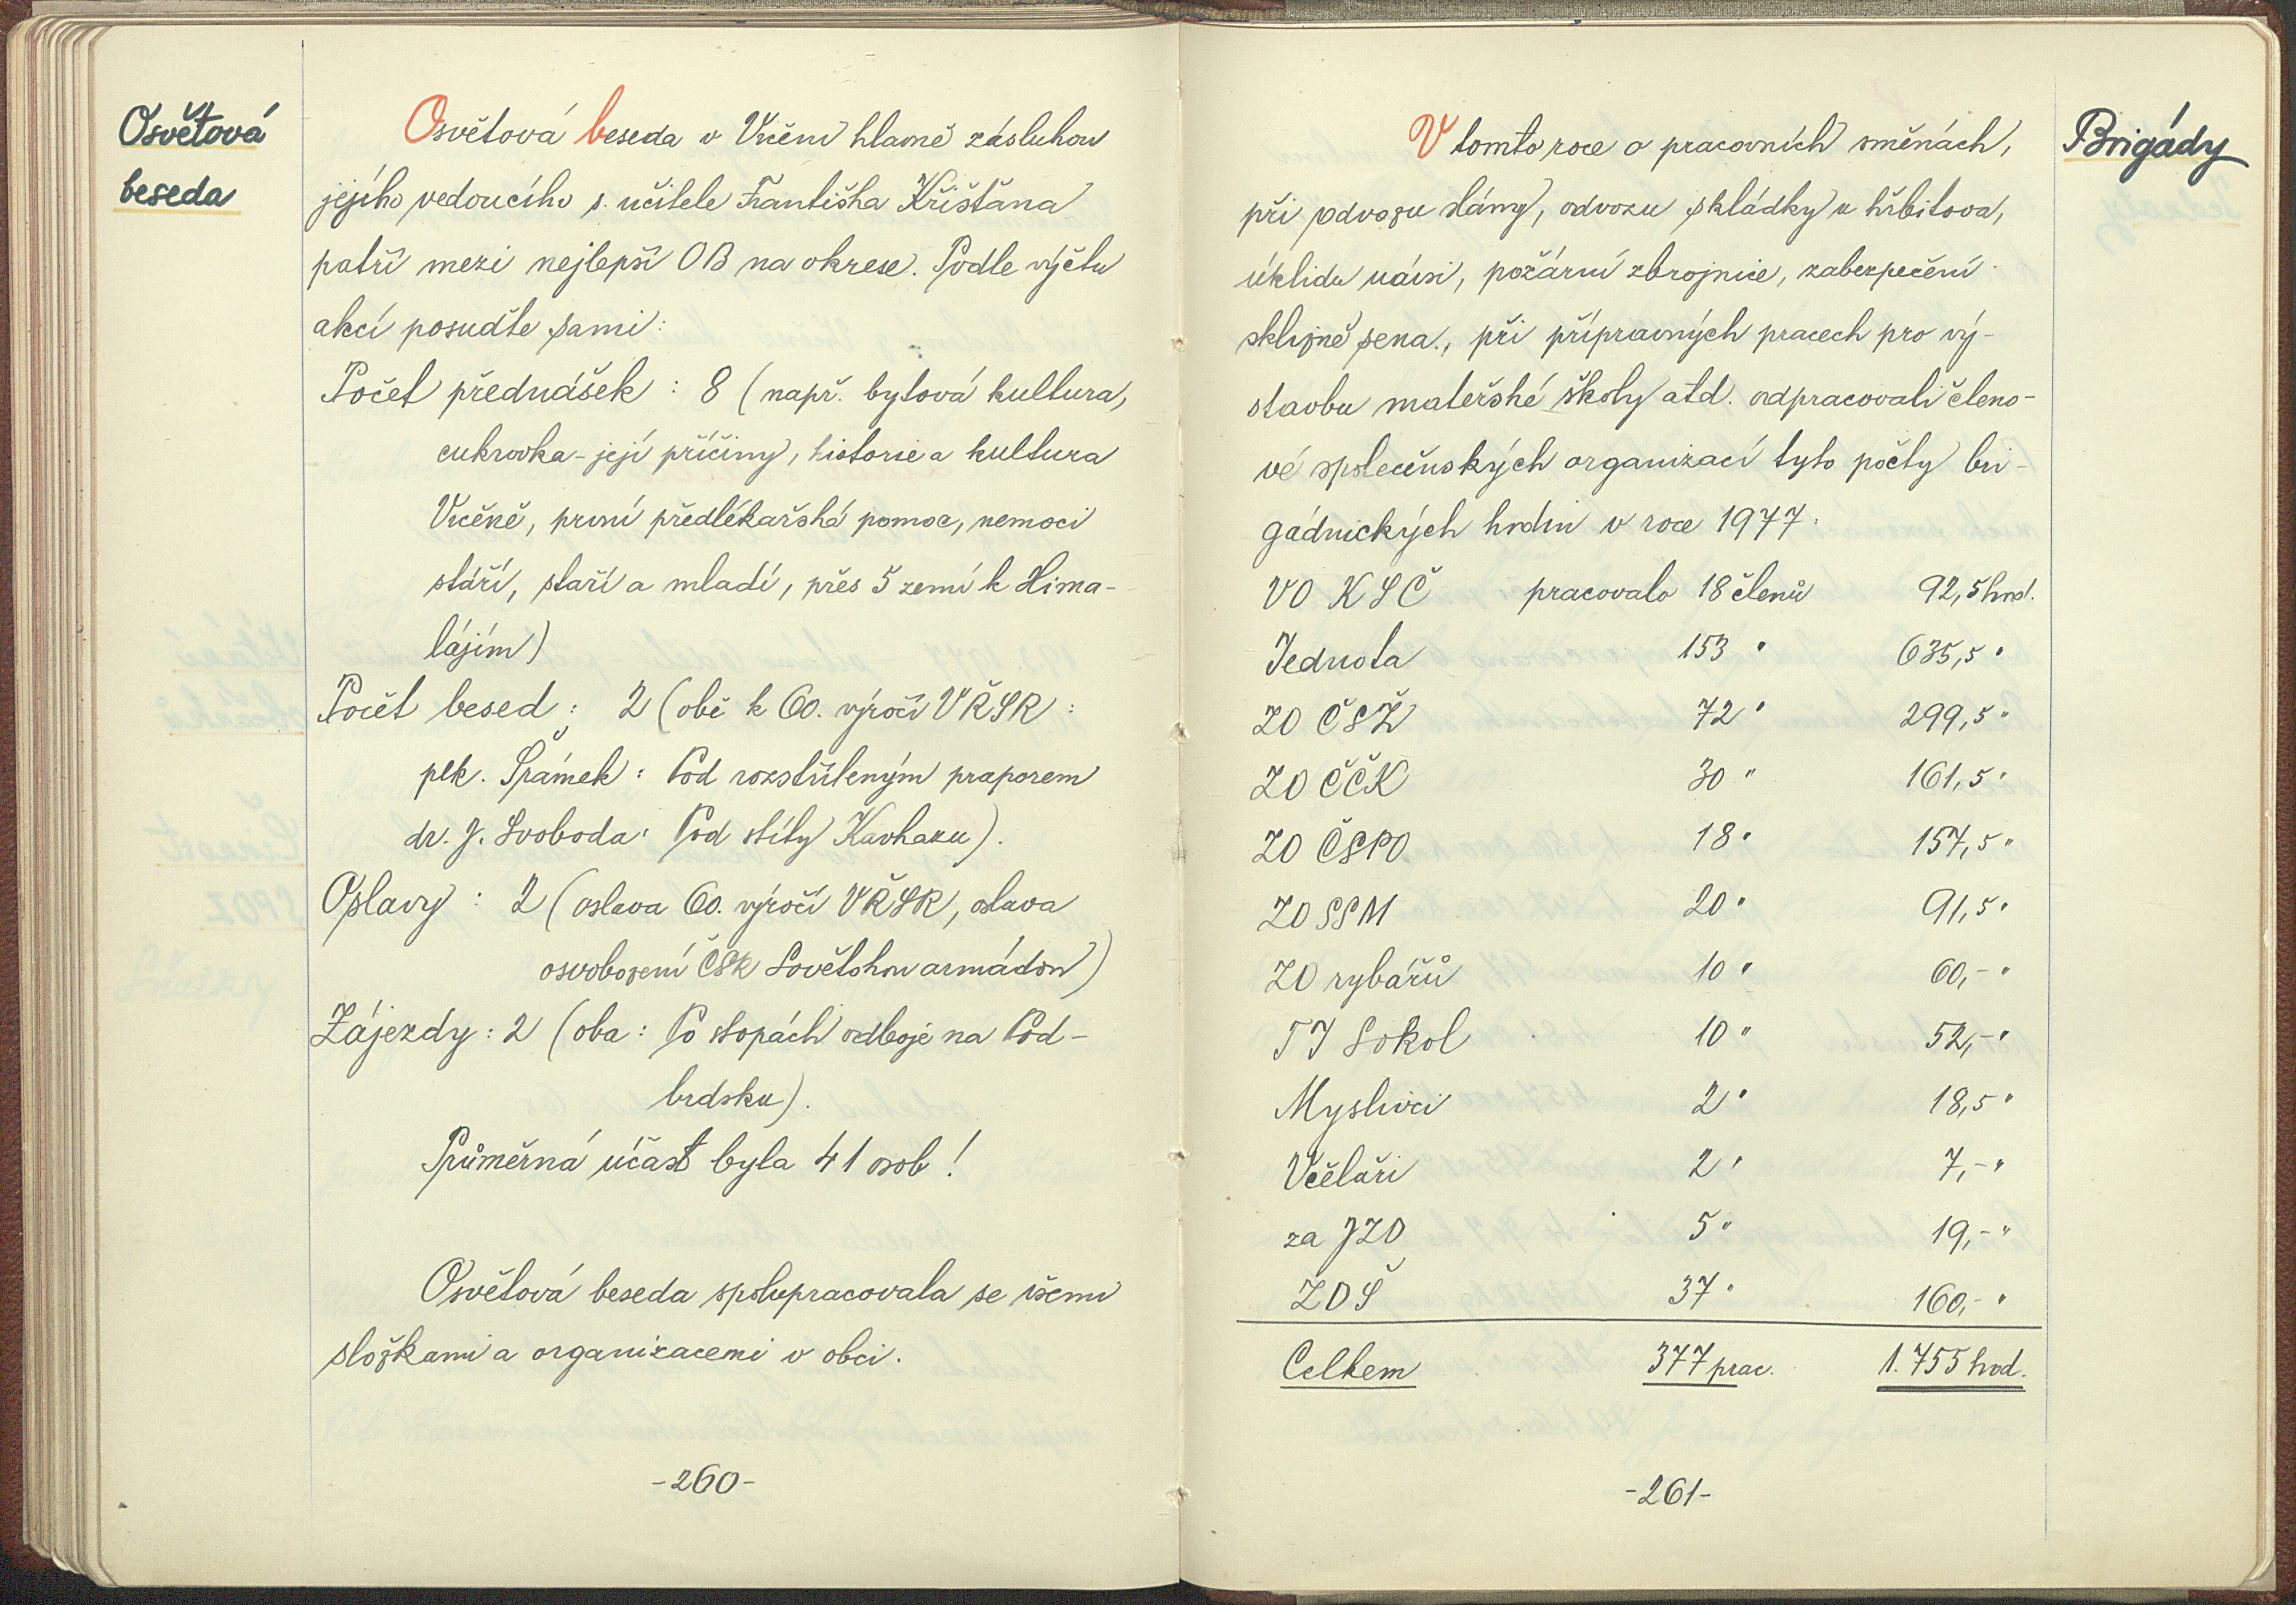 Osvětová
beseda
Osvětová beseda v Vrčeni hlavně zásluhou
jejího vedoucího s. učitele Františka Křišťana
patří mezi nejlepší OB na okrese. Podle výčtu
akcí posuďte sami:
Počet přednášek : 8 (např. bytová kultura,
cukrovka - její příčiny, historie a kultura
Vrčeně, první předlékařská pomoc, nemoci
stáří, staří a mladí, přes 5 zemí k Hima-
lájím)
Počet besed : 2 (obě k 60. výročí VŘSR :
plk. Šrámek : Pod rozstříleným praporem
dr. J. Svoboda : Pod štíty Kavkazu).
Oslavy : 2 (oslava 60. výročí VŘSR, oslava
osvobození ČSR Sovětskou armádou)
Zájezdy : 2 (oba : Po stopách odboje na Pod-
brdsku).
Průměrná účast byla 41 osob !
Osvětová beseda spolupracovala se všemi
složkami a organizacemi v obci.
-260-
Brigády
V tomto roce o pracovních směnách,
při odvozu slámy, odvozu skládky u hřbitova,
úklidu návsi, požární zbrojnice, zabezpečení
sklizně sena., při přípravných pracech pro vý-
stavbu mateřské školy atd. odpracovali členo-
vé společenských organizací tyto počty bri-
gádnických hodin v roce 1977 :
VO KSČ pracovalo 18 členů 92,5 hod.
Jednota 153 " 635,5 "
ZO ČSŽ 72 " 299,5 "
ZO ČČK 30 " 161,5 "
ZO ČSPO 18 " 157,5 "
ZO SSM 20 " 91,5 "
ZO rybářů 10 " 60,- "
TJ Sokol 10 " 52,- "
Myslivci 2 " 18,5 "
Včelaři 2 " 7,- "
za JZD 5 " 19,- "
ZDŠ 37 " 160,- "
Celkem 377 prac. 1.755 hod.
-261-